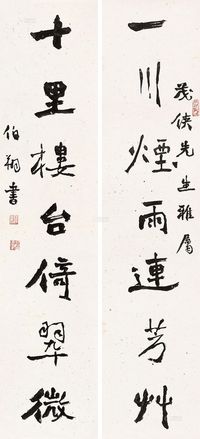 一川煙雨連芳艸
茂俠先生雅屬
十里樓台倚翠微
伯翔書